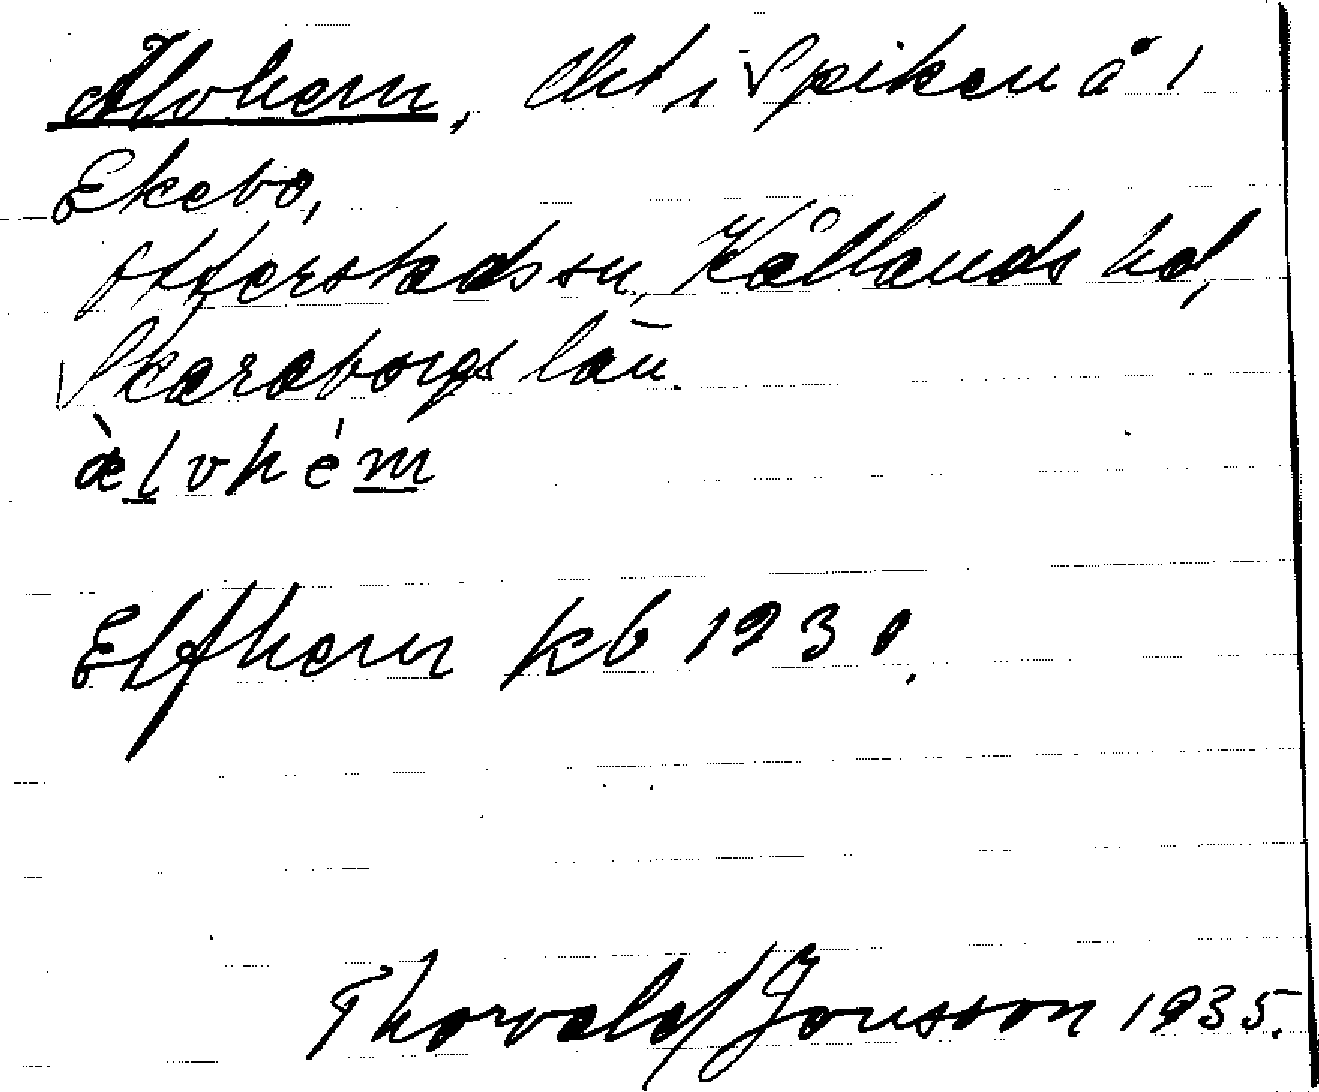 Älvhem, lht i Spiken å 1
Ekebo,
Otterstads sn, Kållands hd,
Skaraborgs län.
æ̀lvhém
Elfhem kb 1930.
Thorvald Jonsson 1935.